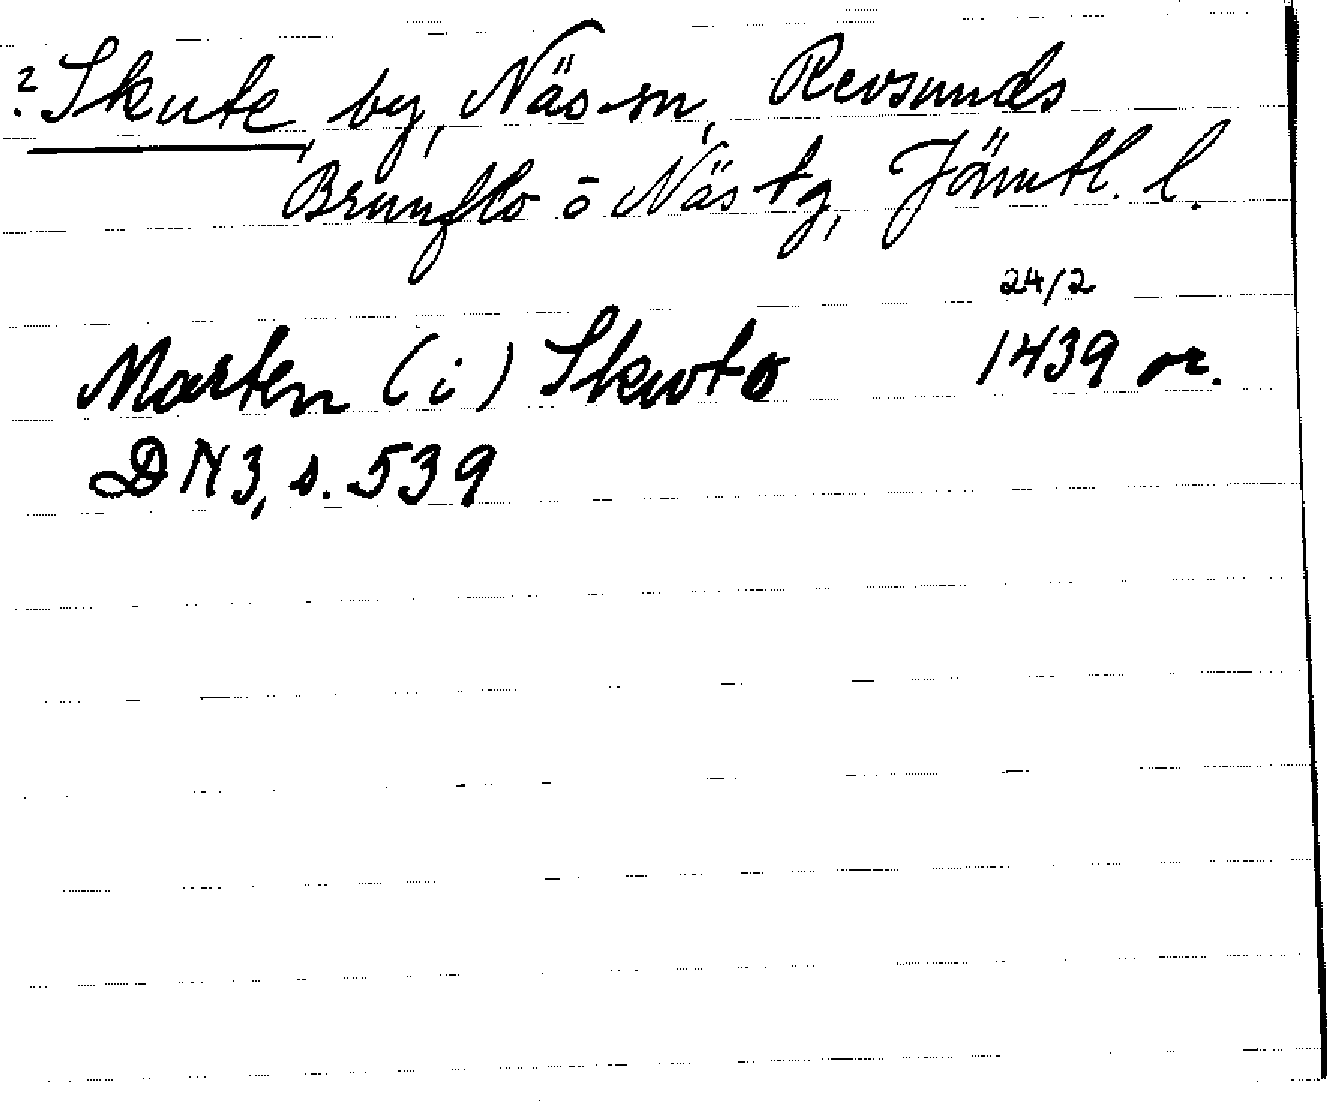 ? Skute, by, Näs sn, Revsunds
Brunflo o Näs tg, Jämtl. l.
24/2
Marten (i) Skwto 1439 or.
DN 3, s. 539